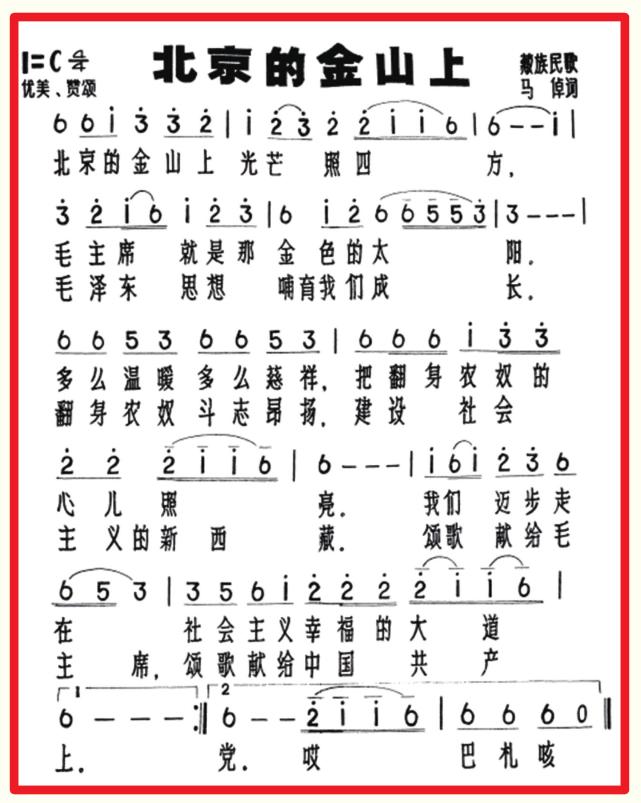 1=C 4/4 北京的金山上 藏族民歌
优美、赞颂 马倬词
6 6 i 3 3 2 | i 2 3 2 2 i i 6 | 6 - - i |
北京的金山上 光芒 照四 方.
3 2 i 6 i 2 3 | 6 i 2 6 6 5 5 3 | 3 - - - |
毛主席 就是那 金色的太 阳.
毛泽东 思想 哺育我们成 长.
6 6 5 3 6 6 5 3 | 6 6 6 i 3 3
多么温暖 多么慈祥, 把翻身农奴的
翻身农奴 斗志昂扬, 建设 社会
2 2 2 i i 6 | 6 - - - | i 6 i 2 3 6
心儿照 亮. 我们 迈步走
主义的新西 藏. 颂歌 献给毛
6 5 3 | 3 5 6 i 2 2 2 2 i i 6 |
在 社会主义幸福的大 道
主 席, 颂歌献给中国 共 产
1 2
6 - - - :‖ 6 - - 2 i i 6 | 6 6 6 0 ‖
上. 党. 哎 巴札咳